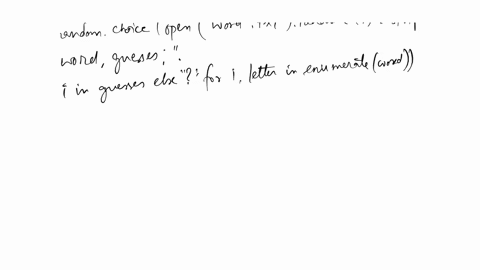 random. choice ( open ( "word
word, guesses; ".
i in guesses else "?" for i, letter in enumerate(word))